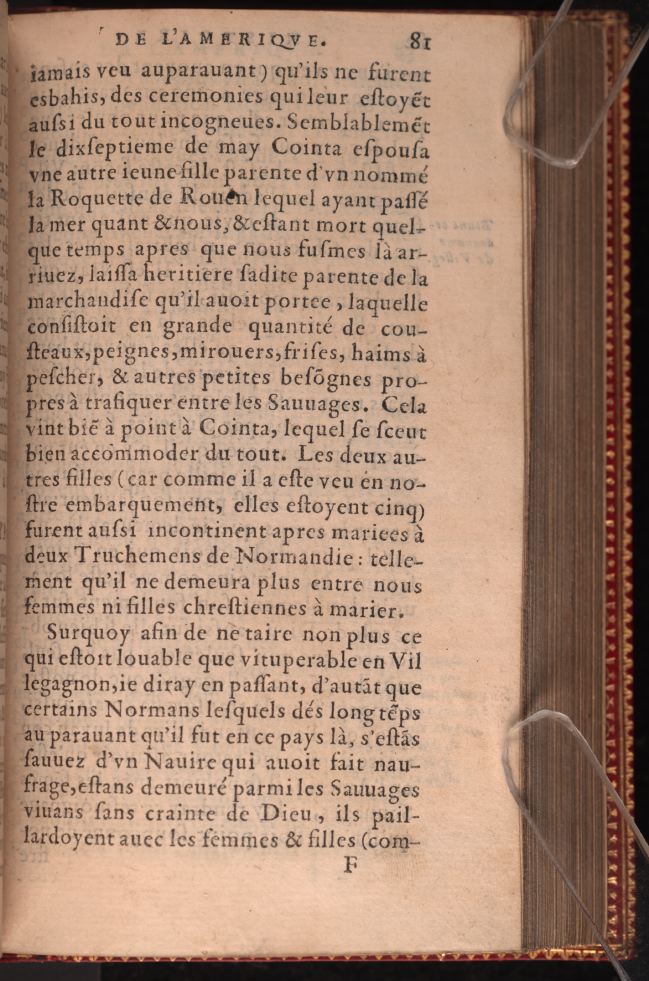 DE L'AMERIQVE. 81
iamais veu auparauant) qu'ils ne furent
esbahis, des ceremonies qui leur eſtoyẽt
auſsi du tout incogneues. Semblablemẽt
le dixſeptieme de may Cointa eſpouſa
vne autre ieune fille parente d'vn nommé
la Roquette de Rouen lequel ayant paſſé
la mer quant & nous, & eſtant mort quel-
que temps apres que nous fuſmes là ar-
riuez, laiſſa heritiere ſadite parente de la
marchandiſe qu'il auoit portee, laquelle
conſiſtoit en grande quantité de cou-
ſteaux, peignes, mirouers, friſes, haims à
peſcher, & autres petites beſõgnes pro-
pres à trafiquer entre les Sauuages. Cela
vint biẽ à point à Cointa, lequel ſe ſceut
bien accommoder du tout. Les deux au-
tres filles (car comme il a eſte veu en no-
ſtre embarquement, elles eſtoyent cinq)
furent auſsi incontinent apres mariees à
deux Truchemens de Normandie: telle-
ment qu'il ne demeura plus entre nous
femmes ni filles chreſtiennes à marier.
Surquoy afin de ne taire non plus ce
qui eſtoit louable que vituperable en Vil
legagnon, ie diray en paſſant, d'autãt que
certains Normans leſquels dés long tẽps
au parauant qu'il fut en ce pays là, s'eſtãs
ſauuez d'vn Nauire qui auoit fait nau-
frage, eſtans demeuré parmi les Sauuages
viuans ſans crainte de Dieu, ils pail-
lardoyent auec les femmes & filles (com-
F